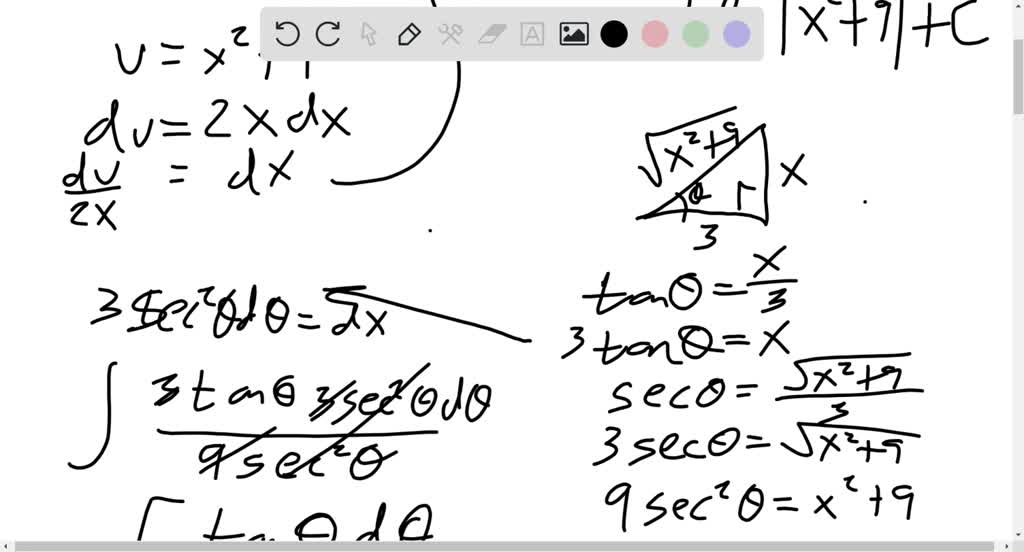 |x²+9|+C
u = x²
du = 2x dx
du/2x = dx
√x²+9
θ
x
3
3 sec²θ dθ = dx
∫ 3 tanθ 3 sec²θ dθ / 9 sec²θ
∫ tanθ dθ
tanθ = x/3
3 tanθ = x
secθ = √x²+9 / 3
3 secθ = √x²+9
9 sec²θ = x²+9